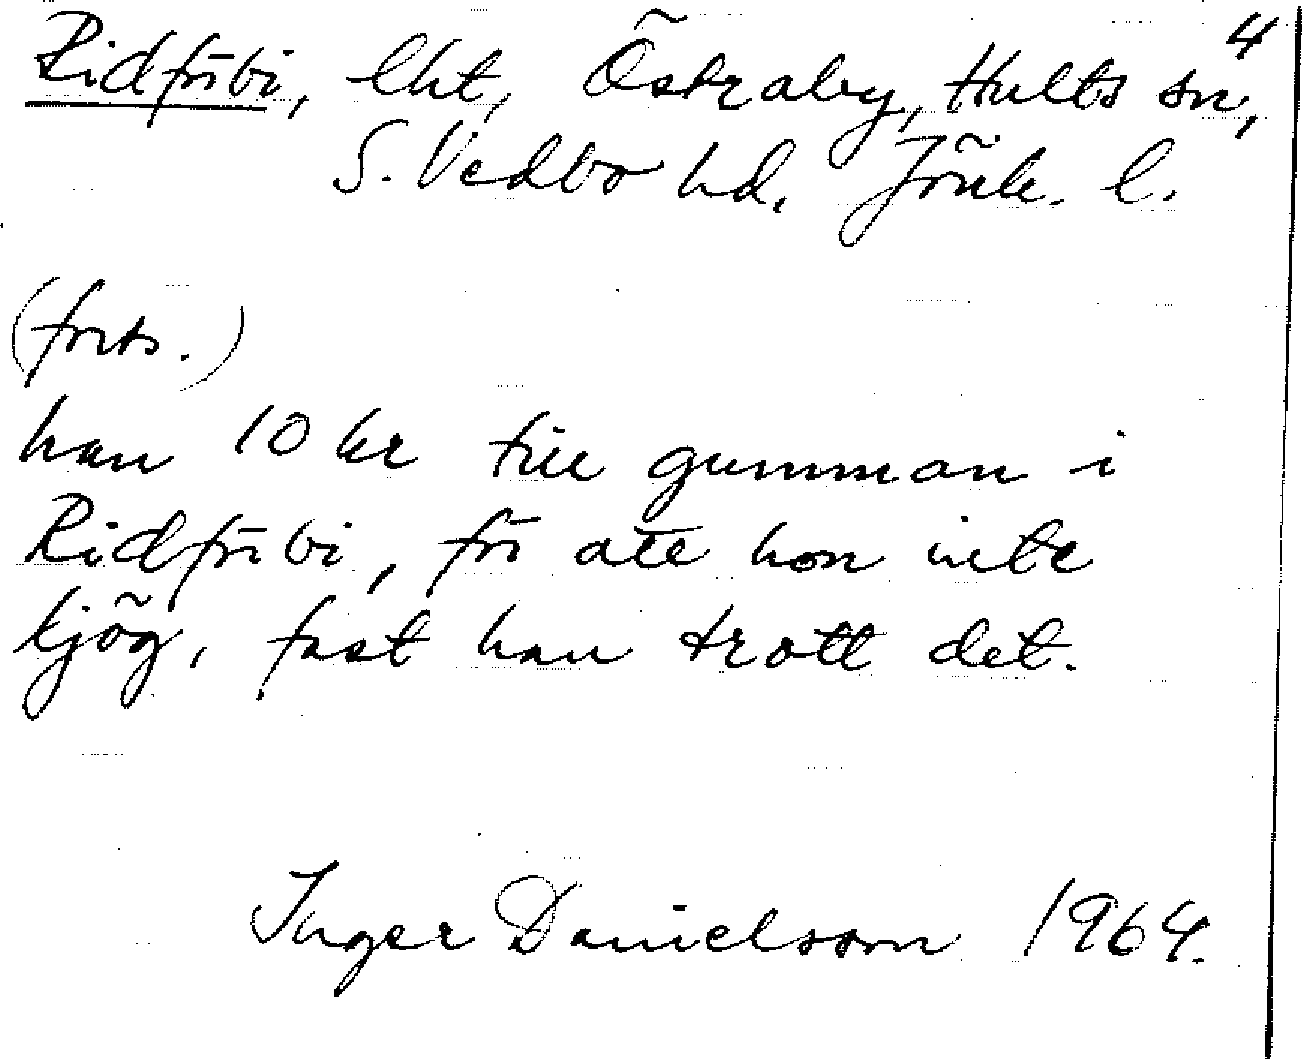 4
Ridförbi, lht, Östraby, Hults sn,
S. Vedbo hd. Jönk. l.
(forts.)
han 10 kr till gumman i
Ridförbi, för att hon inte
ljög, fast han trott det.
Inger Danielsson 1964.